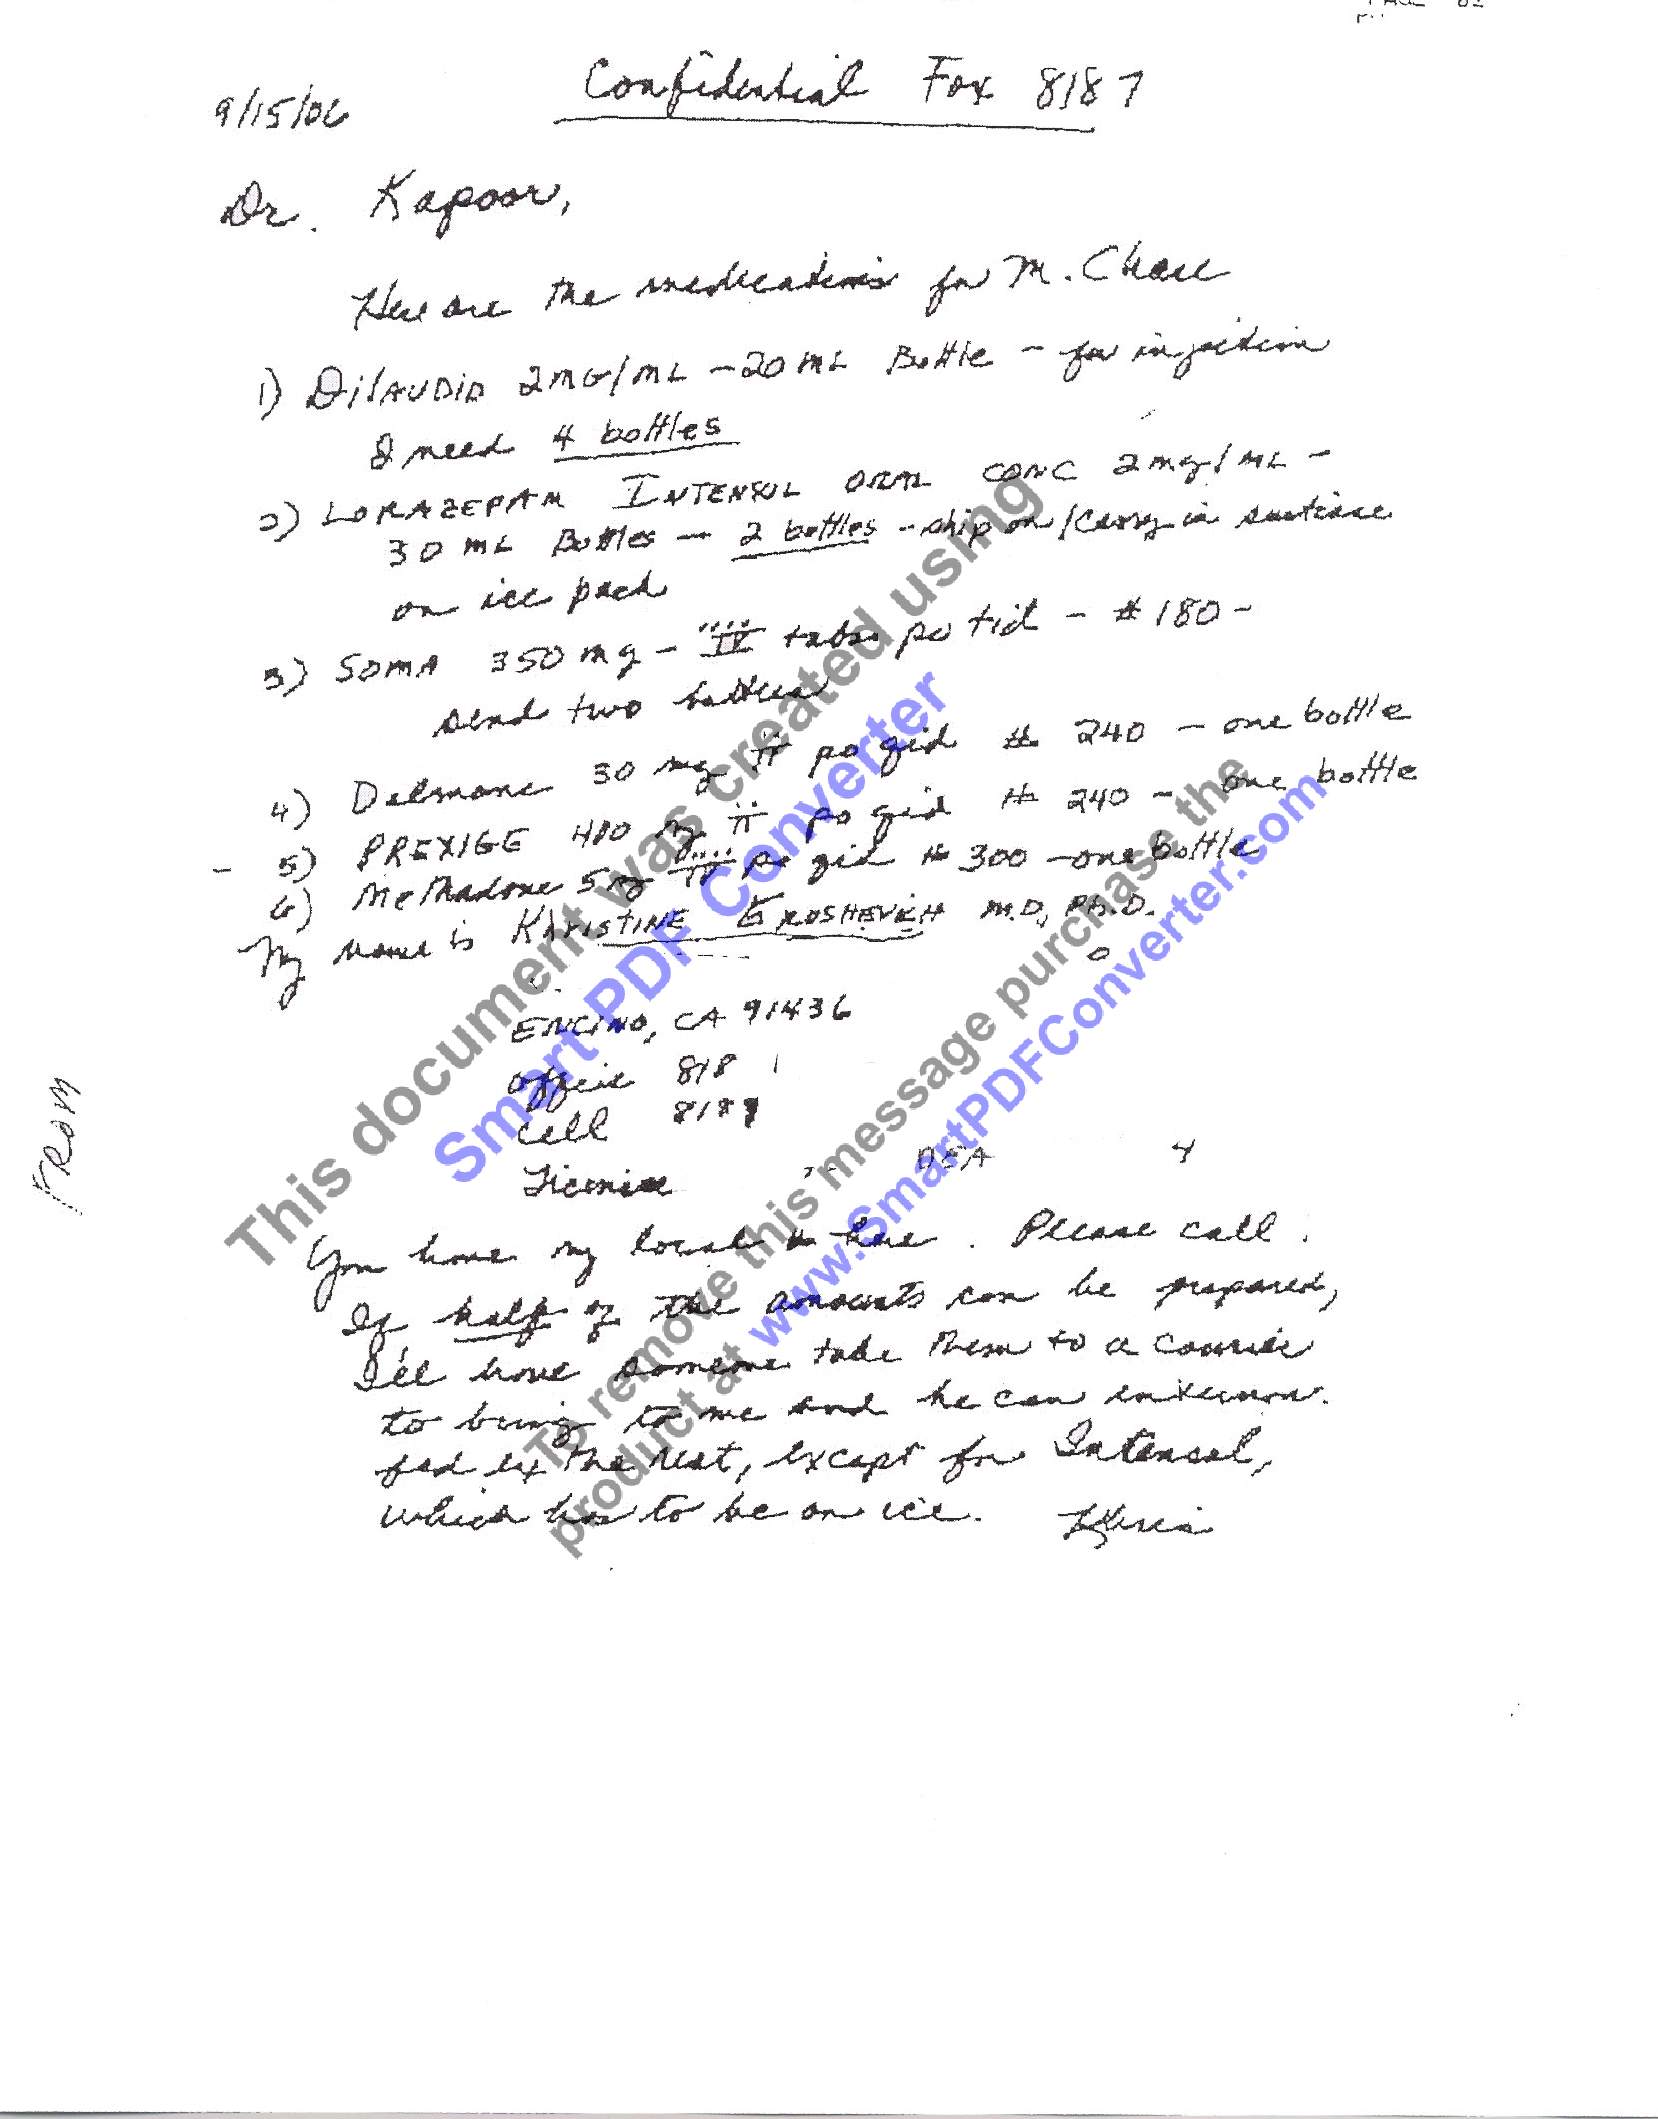 9/15/06
Confidential Fax 8187
Dr. Kapoor,
Here are the medications for M. Chase
1) DilAUDID 2MG/ML - 20 ML Bottle - for injection
I need 4 bottles
2) LORAZEPAM INTENSOL ORAL CONC 2mg/ML -
30 ML Bottles - 2 bottles - ship on/carry in suitcase
on ice pack
3) SOMA 350 mg - IV tabs po tid - # 180 -
send two bottles
4) Dalmane 30 mg II po qid # 240 - one bottle
- 5) PREXIGE 400 mg II po qid # 240 - one bottle
6) Methadone 5 mg IV po qid # 300 - one bottle
My name is KhristINE EROSHEVICH M.D., Ph.D.
ENCINO, CA 91436
Office 818
Cell 818
License DEA 4
You have my local # here. Please call.
If half of the amounts can be prepared,
I'll have someone take them to a courier
to bring to me and he can
fed ex the rest, except for Intensol,
which has to be on ice. Khris
FROM
This document was created using
Smart PDF Converter
To remove this message purchase the
product at www.SmartPDFConverter.com